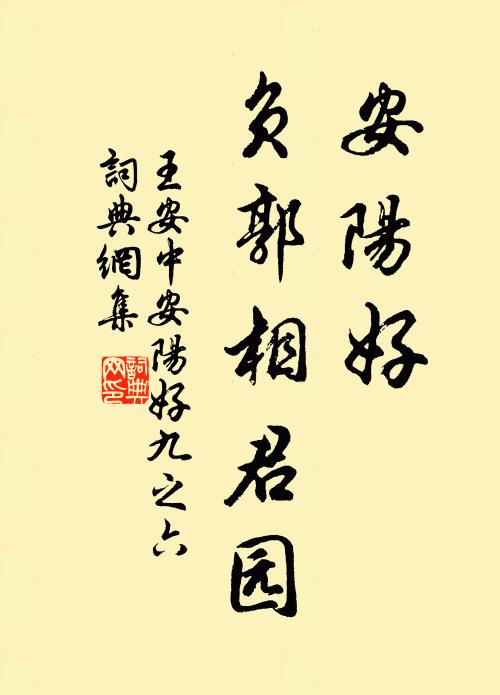 安陽好
负郭相君园
王安中安陽好九之六
詞典網集
詞典
网印